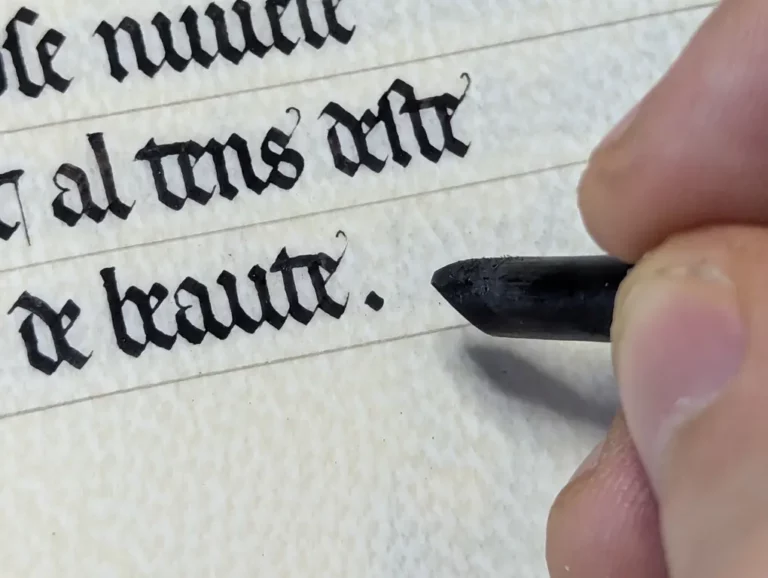 nuuele
al tens deſte
de beaute.